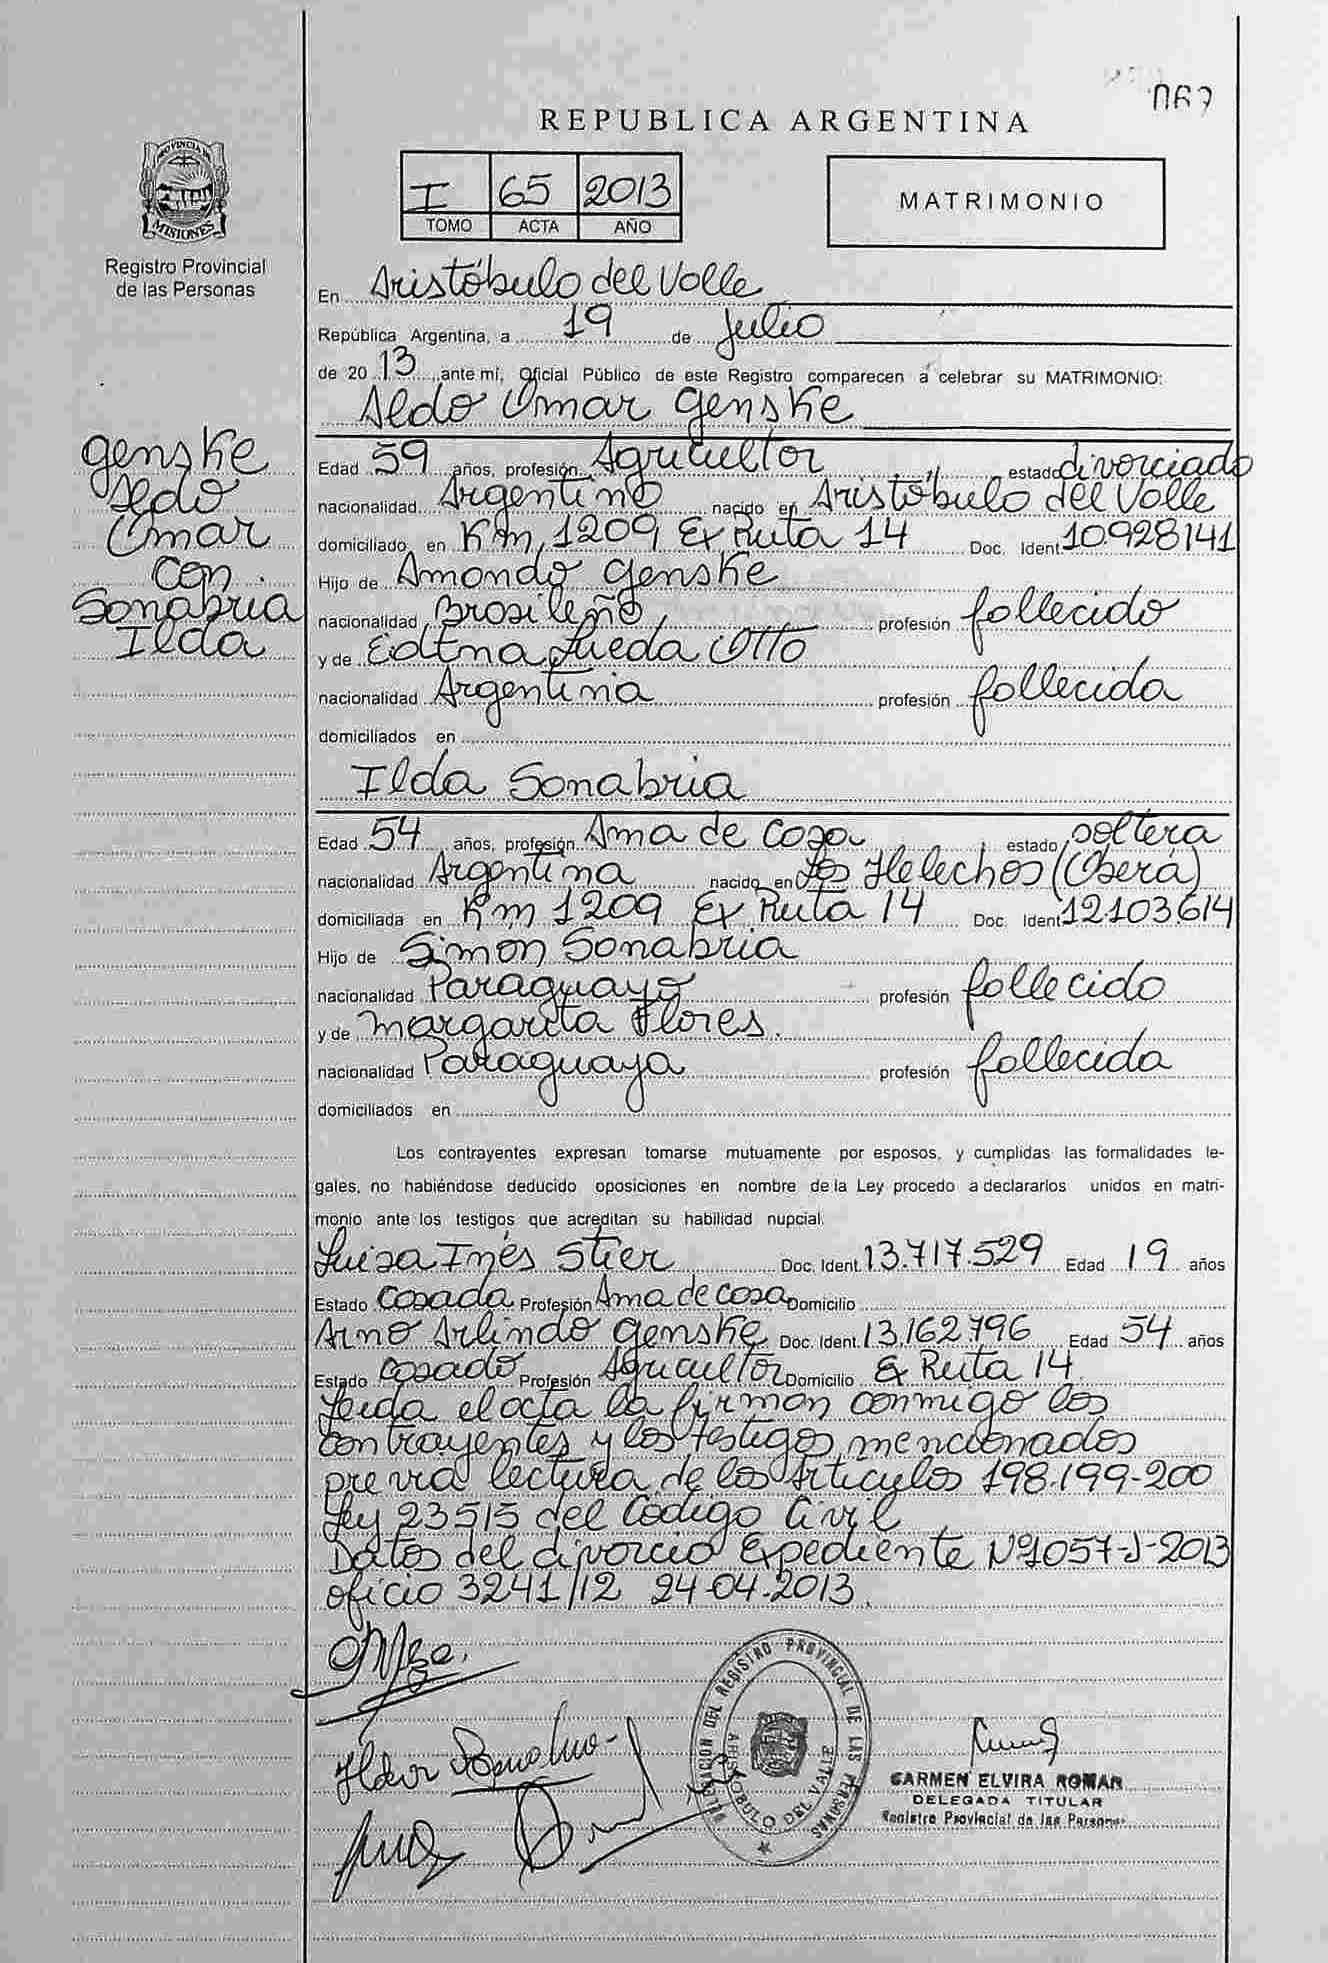 067
REPUBLICA ARGENTINA
PROVINCIA DE
MISIONES
Registro Provincial
de las Personas
I 65 2013
TOMO ACTA AÑO
MATRIMONIO
En Aristóbulo del Valle
República Argentina, a 19 de Julio
de 2013 ante mí, Oficial Público de este Registro comparecen a celebrar su MATRIMONIO:
Aldo Omar Genske
Genske
Aldo
Omar
con
Sanabria
Ilda
Edad 59 años, profesión Agricultor estado divorciado
nacionalidad Argentino nacido en Aristóbulo del Valle
domiciliado en Km 1209 Ex Ruta 14 Doc. Ident 10928141
Hijo de Amando Genske
nacionalidad Brasileño profesión fallecido
y de Edtna Lueda Otto
nacionalidad Argentina profesión fallecida
domiciliados en
Ilda Sanabria
Edad 54 años, profesión Ama de Casa estado soltera
nacionalidad Argentina nacido en Los Helechos (Oberá)
domiciliada en Km 1209 Ex Ruta 14 Doc. Ident 12103614
Hijo de Simon Sanabria
nacionalidad Paraguayo profesión fallecido
y de Margarita Flores.
nacionalidad Paraguaya profesión fallecida
domiciliados en
Los contrayentes expresan tomarse mutuamente por esposos, y cumplidas las formalidades le-
gales, no habiéndose deducido oposiciones en nombre de la Ley procedo a declararlos unidos en matri-
monio ante los testigos que acreditan su habilidad nupcial.
Luisa Inés Stier Doc. Ident. 13.717.529 Edad 19 años
Estado Casada Profesión Ama de casa Domicilio
Arno Arlindo Genske Doc. Ident. 13.162.796 Edad 54 años
Estado casado Profesión Agricultor Domicilio Ex Ruta 14
Leida el acta la firman conmigo los
contrayentes y los testigos mencionados
previa lectura de los Artículos 198-199-200
Ley 23515 del Código Civil
Datos del divorcio Expediente Nº1057-J-2013
oficio 3241/12 24-04-2013.
DELEGACION DEL REGISTRO PROVINCIAL DE LAS PERSONAS
ARISTOBULO DEL VALLE
CARMEN ELVIRA ROMAN
DELEGADA TITULAR
Registro Provincial de las Personas